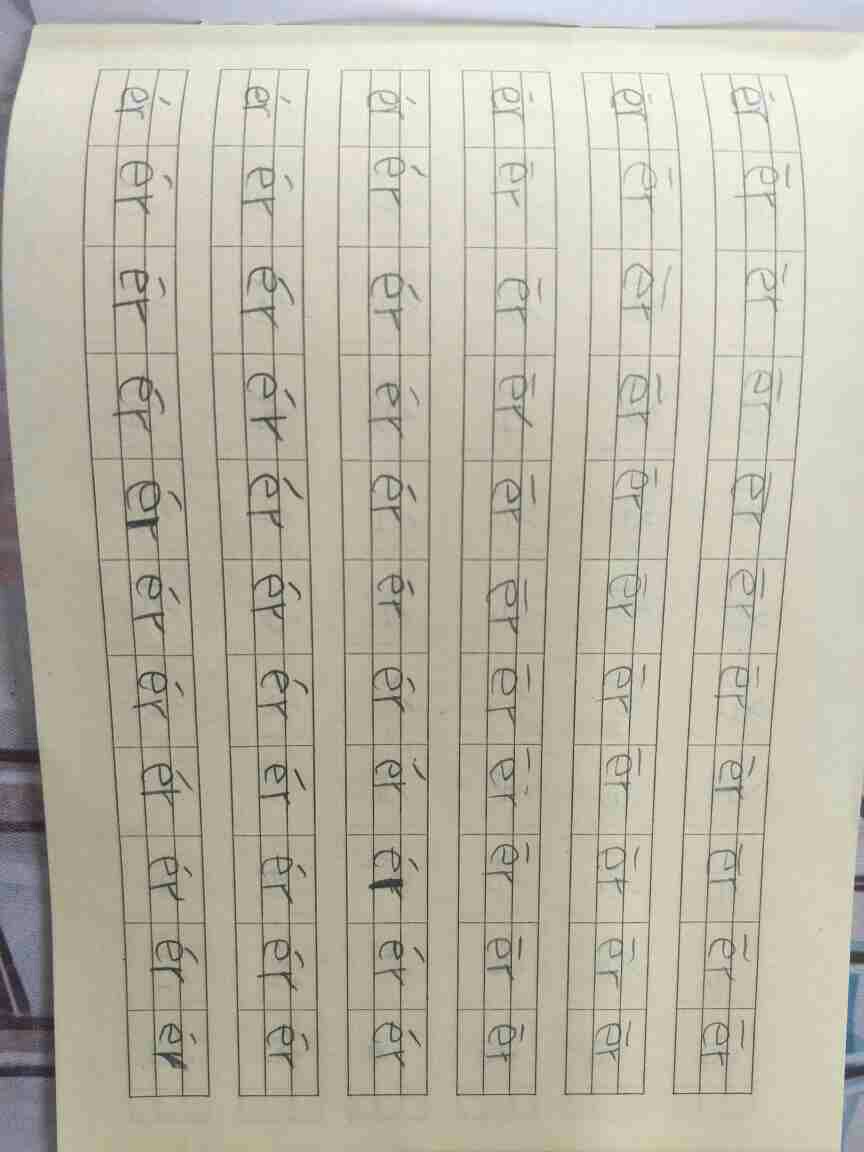 ēr ēr ēr ēr ēr ēr ēr ēr ēr ēr ēr
ēr ēr ēr ēr ēr ēr ēr ēr ēr ēr ēr
ēr ēr ēr ēr ēr ēr ēr ēr ēr ēr ēr
ér ér ér ér ér ér ér ér ér ér ér
ér ér ér ér ér ér ér ér ér ér ér
ér ér ér ér ér ér ér ér ér ér ér